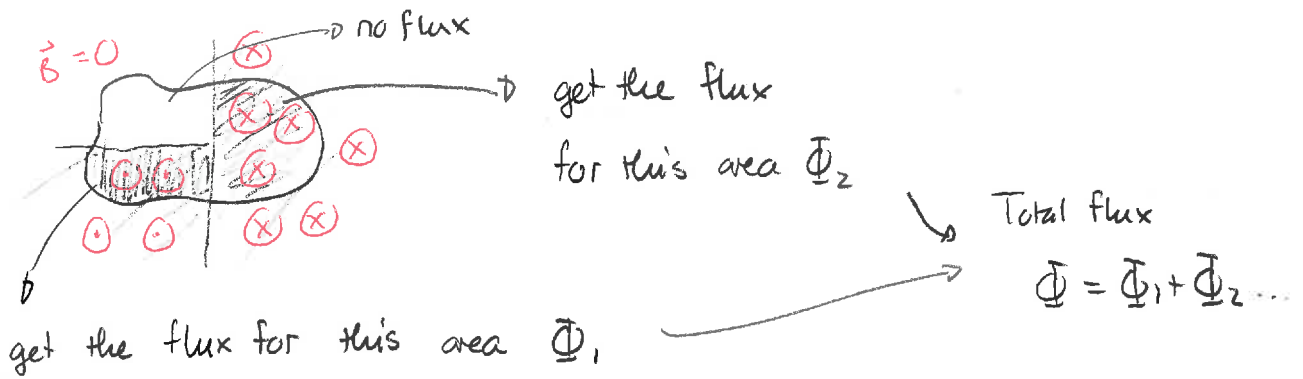 B⃗ = 0
no flux
get the flux
for this area Φ₂
Total flux
Φ = Φ₁ + Φ₂ ...
get the flux for this area Φ₁